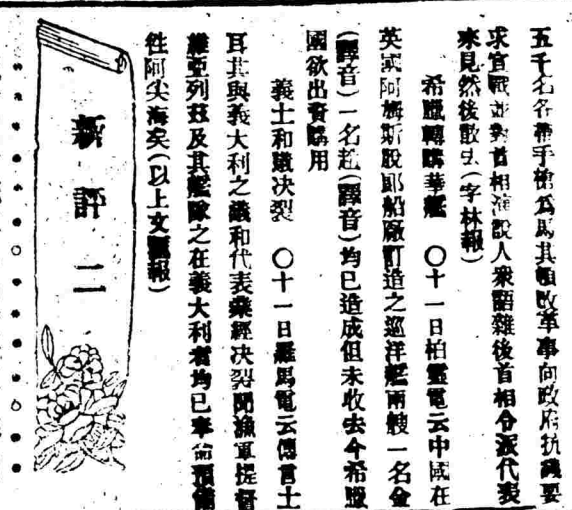 五千名各帶手槍為馬其頓改革事向政府抗議要
求宣戰並對首相演說人衆語雜後首相令派代表
來見然後散去(字林報)
希臘轉購華艦 〇十一日柏靈電云中國在
英國阿姆斯脫郎船廠訂造之巡洋艦兩艘一名金
(譯音)一名趁(譯音)均已造成但未收去今希臘
國欲出資購用
義土和議决裂 〇十一日羅馬電云傳言土
耳其與義大利之議和代表業經决裂聞海軍提督
維亞列茲及其艦隊之在義大利者均已奉命預備
往阿尖海矣(以上文匯報)
新評二